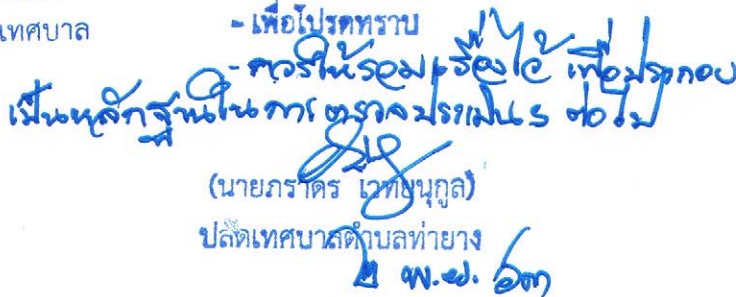 เทศบาล
- เพื่อโปรดทราบ
- ควรให้รวมเรื่องไว้ เพื่อประกอบ
เป็นหลักฐานในการตรวจประเมินฯ ต่อไป
(นายภราดร เวทยนุกูล)
ปลัดเทศบาลตำบลท่ายาง
พ.ย.